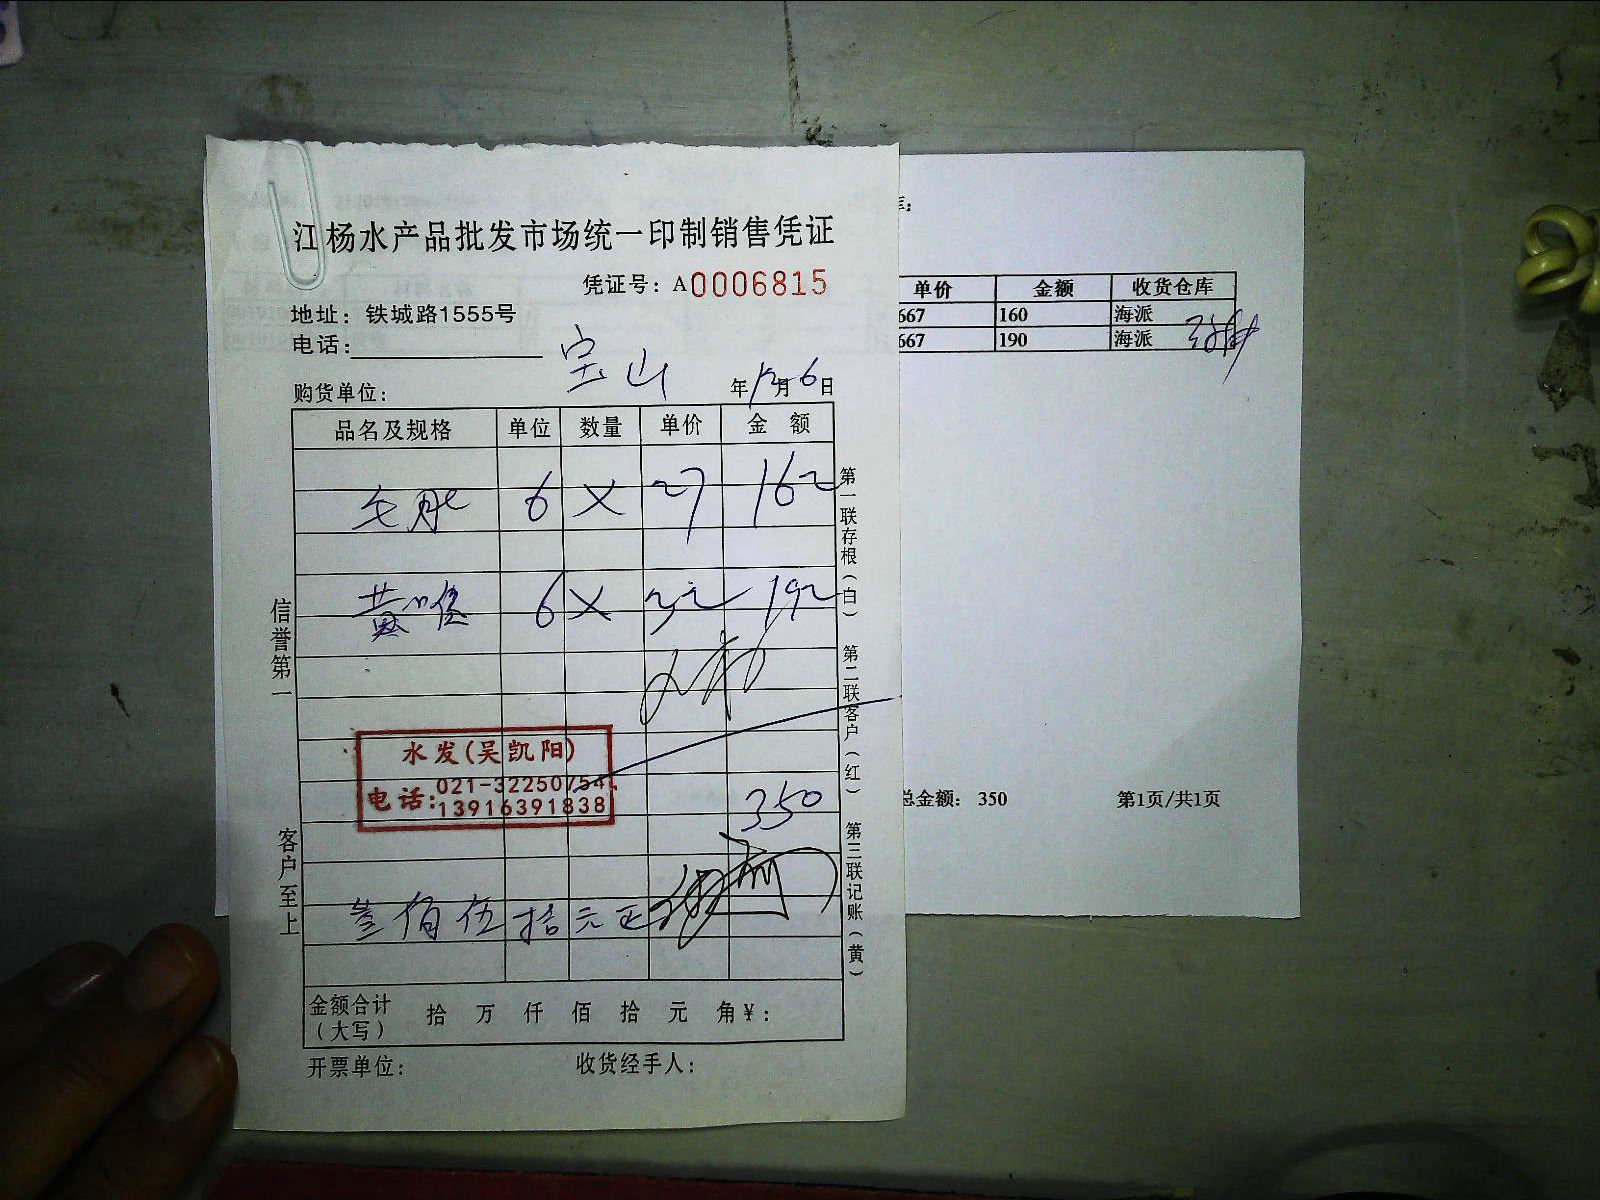 江杨水产品批发市场统一印制销售凭证
凭证号：A0006815
地址：铁城路1555号
电话：
宝山
购货单位：
年12月6日
品名及规格 单位 数量 单价 金额
6 × 27 162
6 × 32 192
水发(吴凯阳)
电话：021-32250754
13916391838
350
叁佰伍拾元正
金额合计（大写） 拾 万 仟 佰 拾 元 角 ¥：
开票单位： 收货经手人：
信誉第一
客户至上
第一联存根（白）
第二联客户（红）
第三联记账（黄）
单价 金额 收货仓库
667 160 海派
667 190 海派
总金额： 350 第1页/共1页